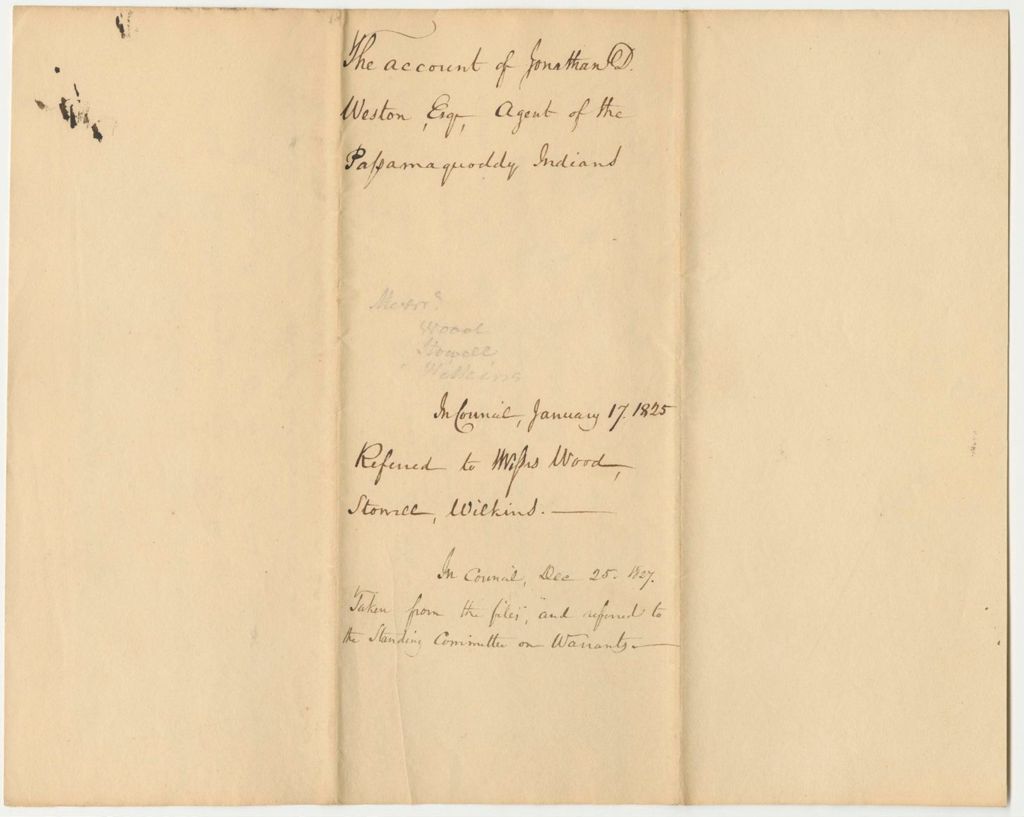 The account of Jonathan D.
Weston, Esqr, Agent of the
Passamaquoddy Indians
Messrs
Wood
Stowell
Wilkins
In Council, January 17. 1825
Referred to Messrs Wood,
Stowell, Wilkins. —
In Council, Dec 25. 1827.
Taken from the files, and referred to
the Standing Committee on Warrants. —